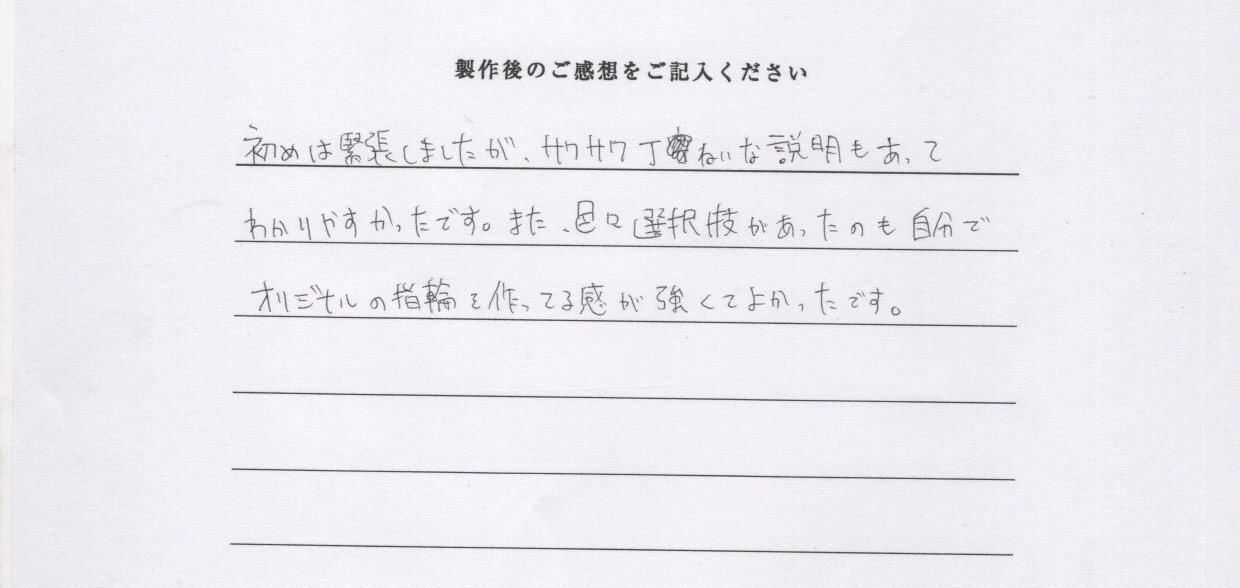 製作後のご感想をご記入ください
初めは緊張しましたが、サクサク丁ねいな説明もあって
わかりやすかったです。また、色々選択肢があったのも自分で
オリジナルの指輪を作ってる感が強くてよかったです。